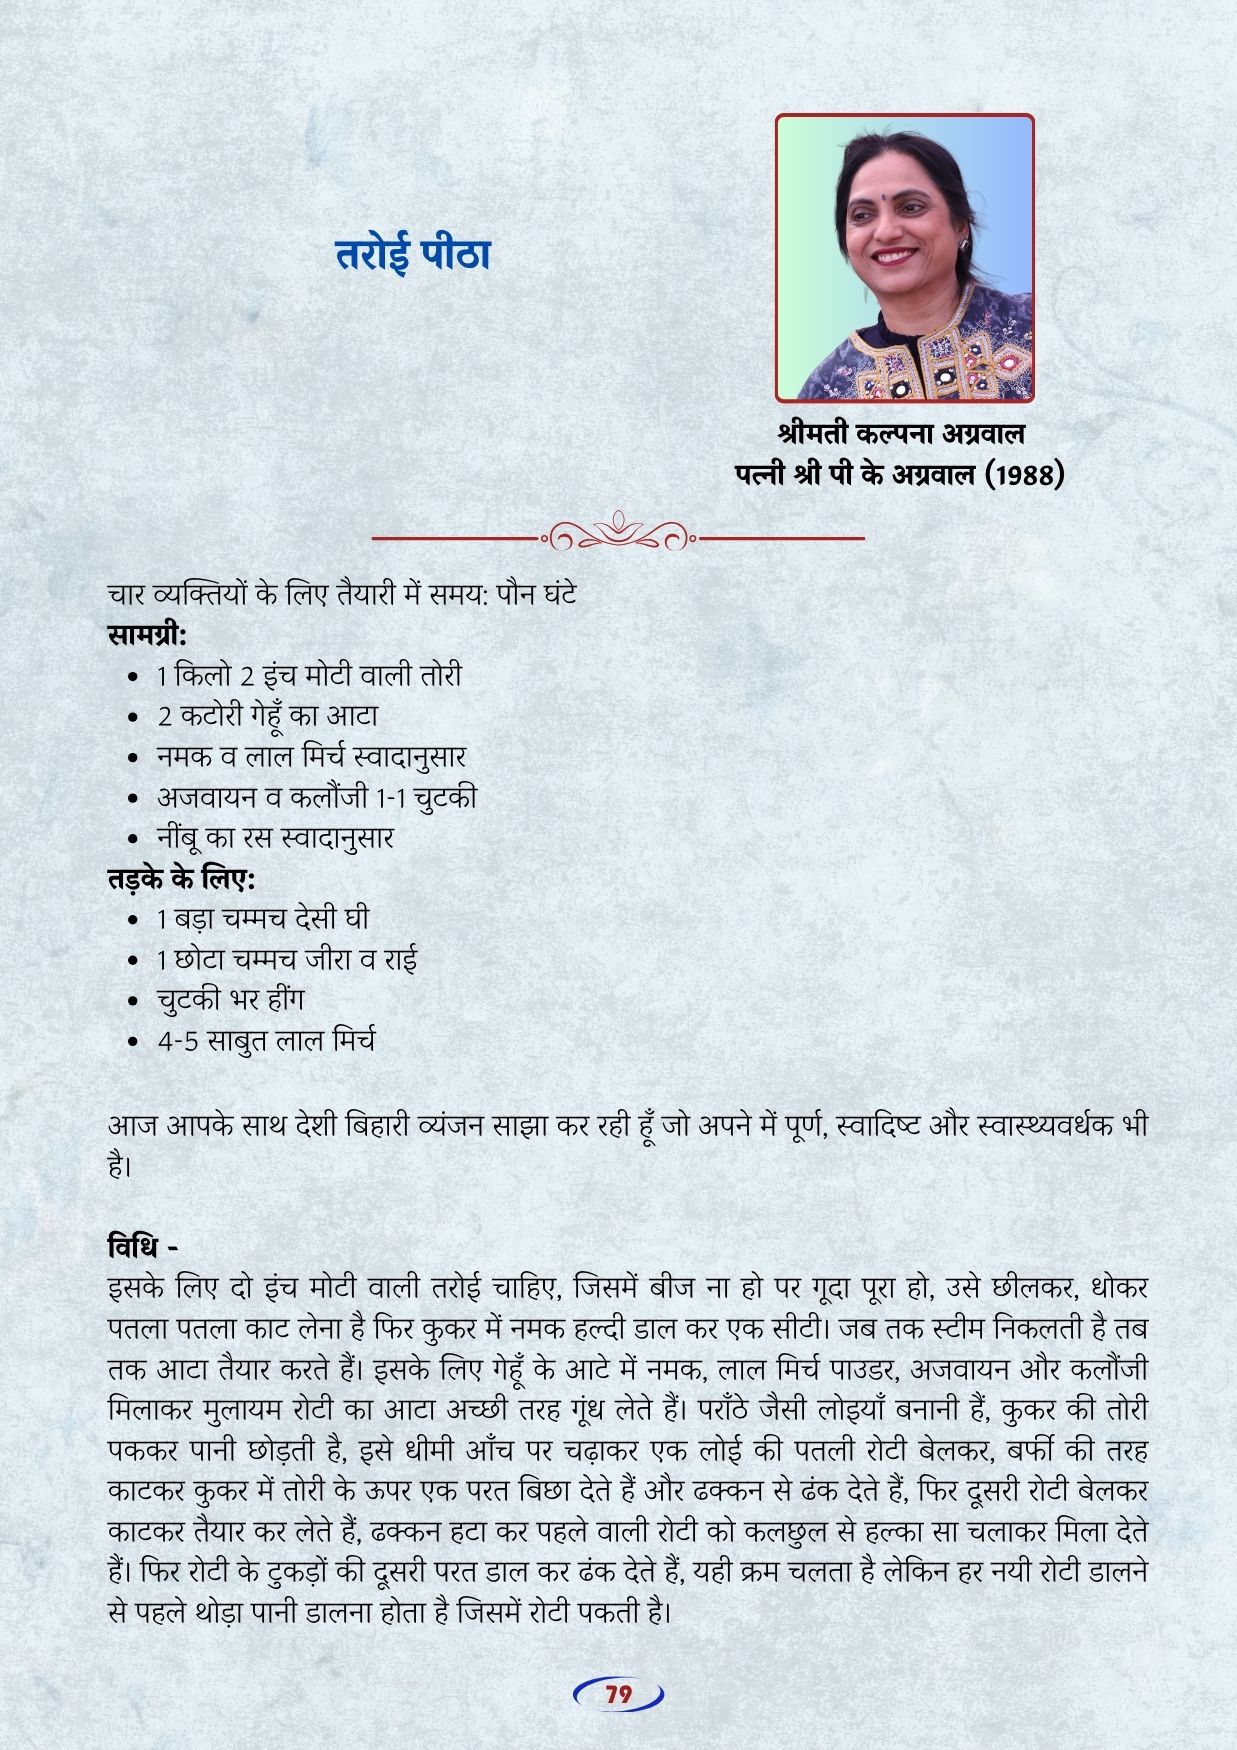 तरोई पीठा
श्रीमती कल्पना अग्रवाल
पत्नी श्री पी के अग्रवाल (1988)
चार व्यक्तियों के लिए तैयारी में समय: पौन घंटे
सामग्री:
• 1 किलो 2 इंच मोटी वाली तोरी
• 2 कटोरी गेहूँ का आटा
• नमक व लाल मिर्च स्वादानुसार
• अजवायन व कलौंजी 1-1 चुटकी
• नींबू का रस स्वादानुसार
तड़के के लिए:
• 1 बड़ा चम्मच देसी घी
• 1 छोटा चम्मच जीरा व राई
• चुटकी भर हींग
• 4-5 साबुत लाल मिर्च
आज आपके साथ देशी बिहारी व्यंजन साझा कर रही हूँ जो अपने में पूर्ण, स्वादिष्ट और स्वास्थ्यवर्धक भी
है।
विधि -
इसके लिए दो इंच मोटी वाली तरोई चाहिए, जिसमें बीज ना हो पर गूदा पूरा हो, उसे छीलकर, धोकर
पतला पतला काट लेना है फिर कुकर में नमक हल्दी डाल कर एक सीटी। जब तक स्टीम निकलती है तब
तक आटा तैयार करते हैं। इसके लिए गेहूँ के आटे में नमक, लाल मिर्च पाउडर, अजवायन और कलौंजी
मिलाकर मुलायम रोटी का आटा अच्छी तरह गूंध लेते हैं। पराँठे जैसी लोइयाँ बनानी हैं, कुकर की तोरी
पककर पानी छोड़ती है, इसे धीमी आँच पर चढ़ाकर एक लोई की पतली रोटी बेलकर, बर्फी की तरह
काटकर कुकर में तोरी के ऊपर एक परत बिछा देते हैं और ढक्कन से ढंक देते हैं, फिर दूसरी रोटी बेलकर
काटकर तैयार कर लेते हैं, ढक्कन हटा कर पहले वाली रोटी को कलछुल से हल्का सा चलाकर मिला देते
हैं। फिर रोटी के टुकड़ों की दूसरी परत डाल कर ढंक देते हैं, यही क्रम चलता है लेकिन हर नयी रोटी डालने
से पहले थोड़ा पानी डालना होता है जिसमें रोटी पकती है।
79